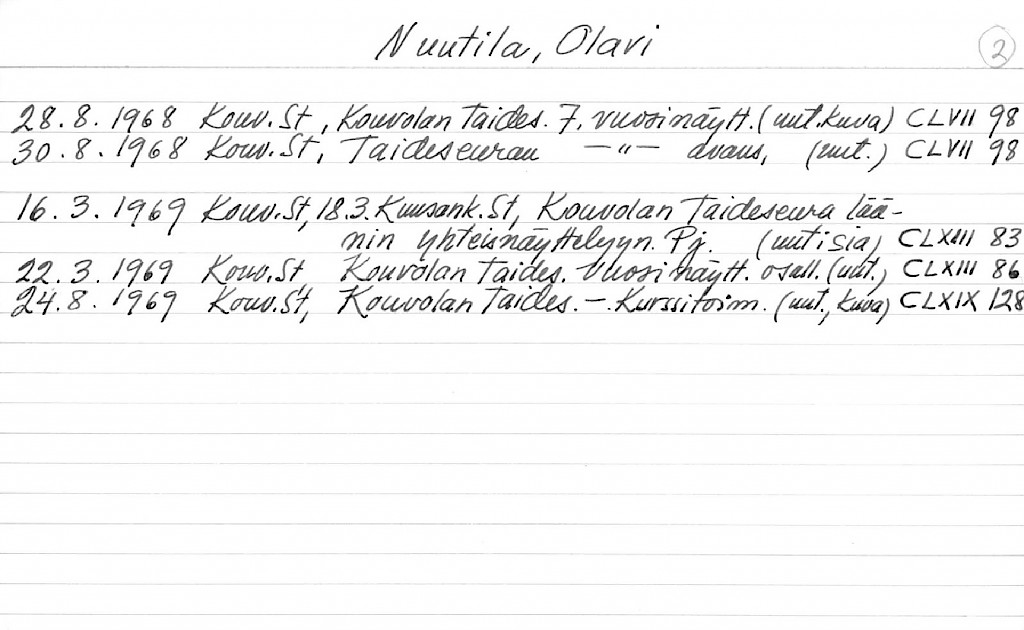 Nuutila, Olavi
2
28.8.1968 Kouv.St, Kouvolan Taides. 7. vuosinäytt. (uut.kuva) CLVII 98
30.8.1968 Kouv.St, Taideseuran —"— avaus, (uut.) CLVII 98
16.3.1969 Kouv.St, 18.3. Kuusank.St, Kouvolan Taideseura lää-
nin yhteisnäyttelyyn. Pj. (uutisia) CLXIII 83
22.3.1969 Kouv.St Kouvolan Taides. Vuosinäytt. osall. (uut.) CLXIII 86
24.8.1969 Kouv.St, Kouvolan Taides. – Kurssitoim. (uut., kuva) CLXIX 128